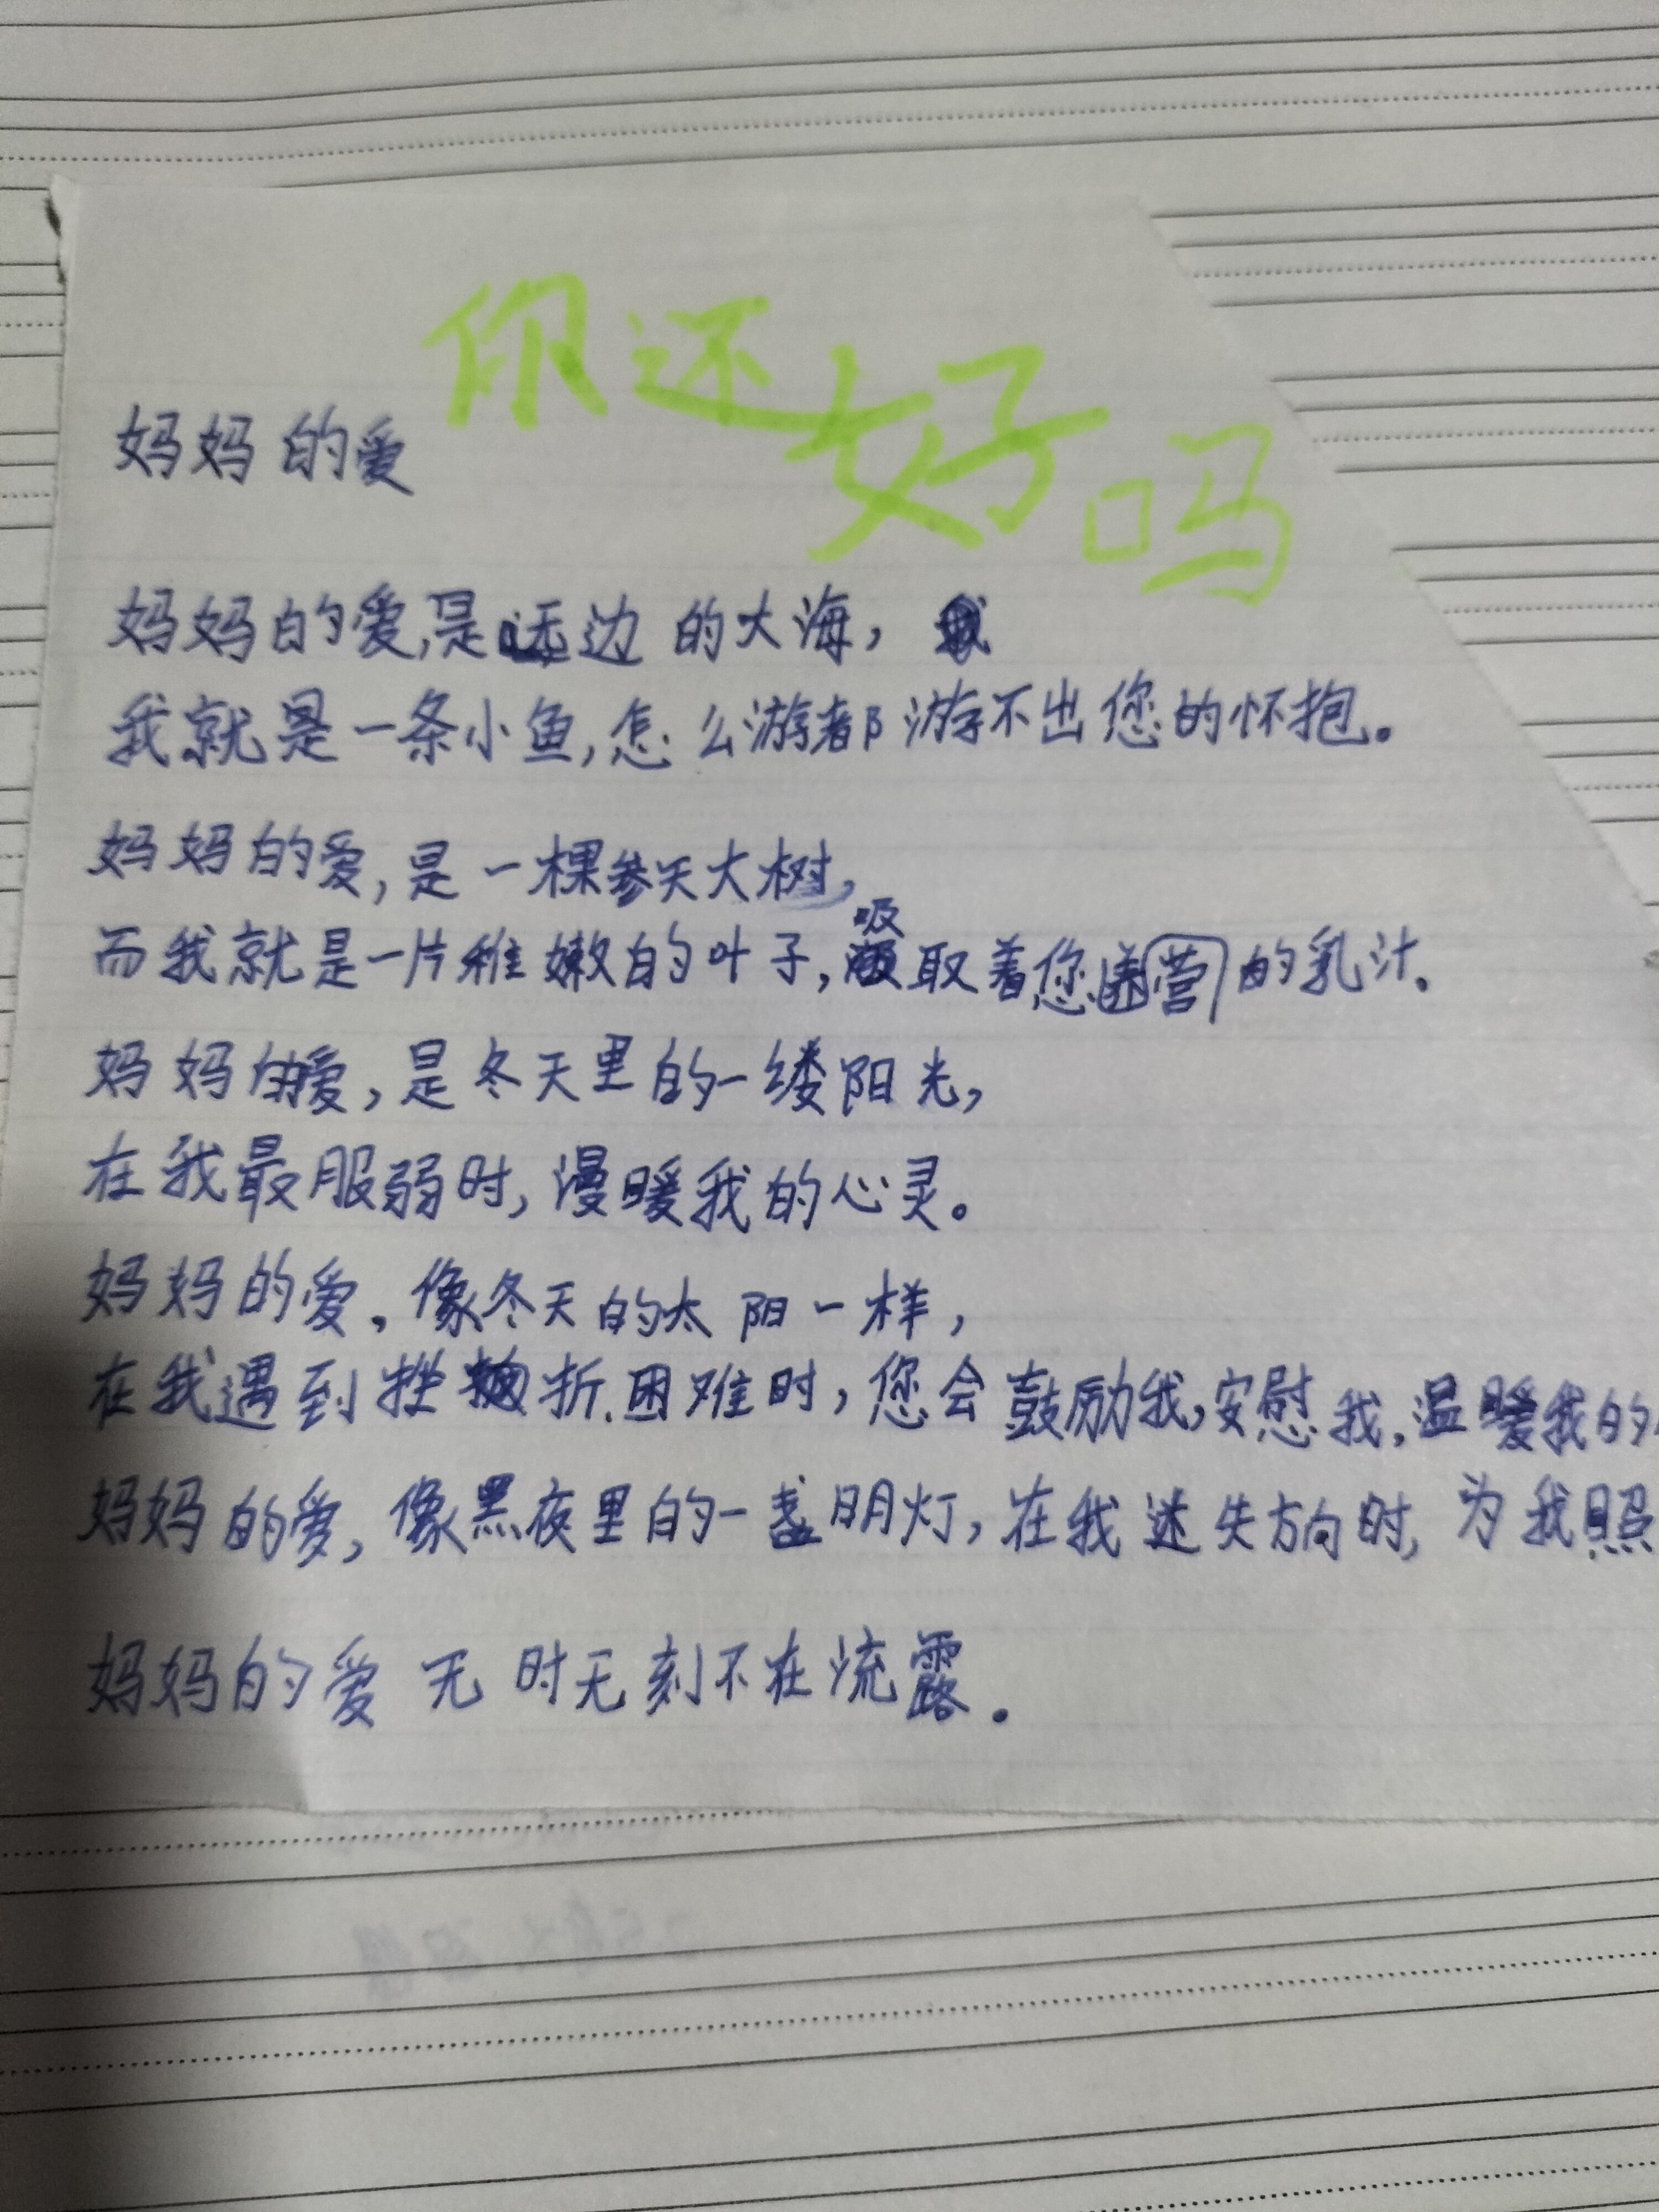 你还好吗
妈妈的爱
妈妈的爱,是无边的大海,
我就是一条小鱼,怎么游都游不出您的怀抱。
妈妈的爱,是一棵参天大树,
而我就是一片稚嫩的叶子,吸取着您营的乳汁。
妈妈的爱,是冬天里的一缕阳光,
在我最服弱时,漫暖我的心灵。
妈妈的爱。像冬天的太阳一样,
在我遇到挫折.困难时,您会鼓励我,安慰我,温暖我的
妈妈的爱,像黑夜里的一盏明灯,在我迷失方向时,为我照
妈妈的爱 无时无刻不在流露。